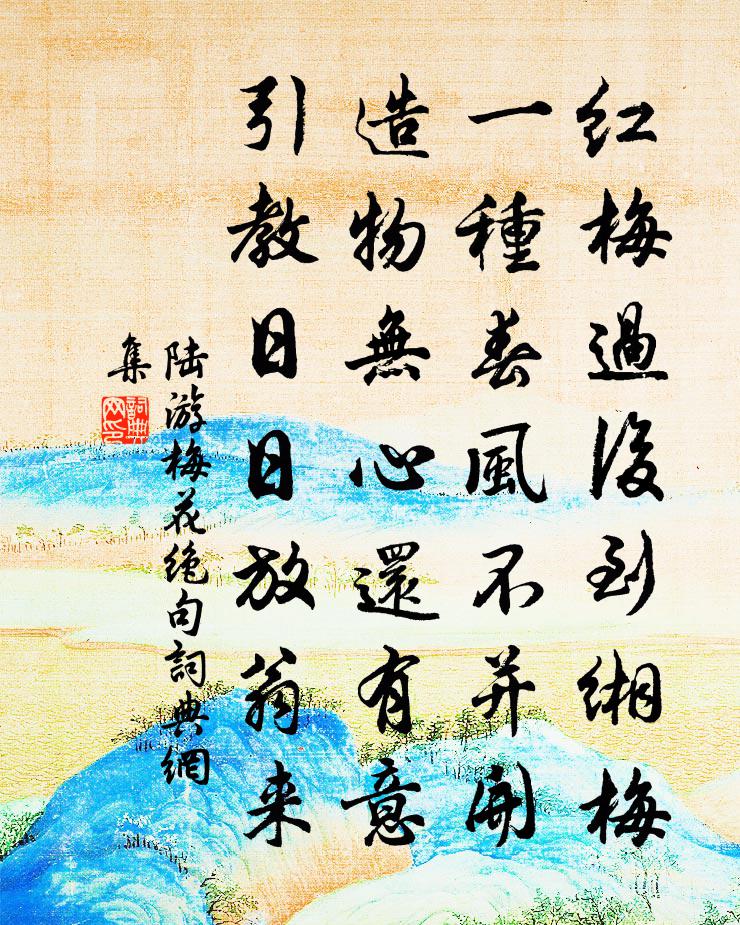 红梅過後到緗梅
一種春風不并開
造物無心還有意
引教日日放翁来
陆游梅花绝句詞典網
集
詞典
网印